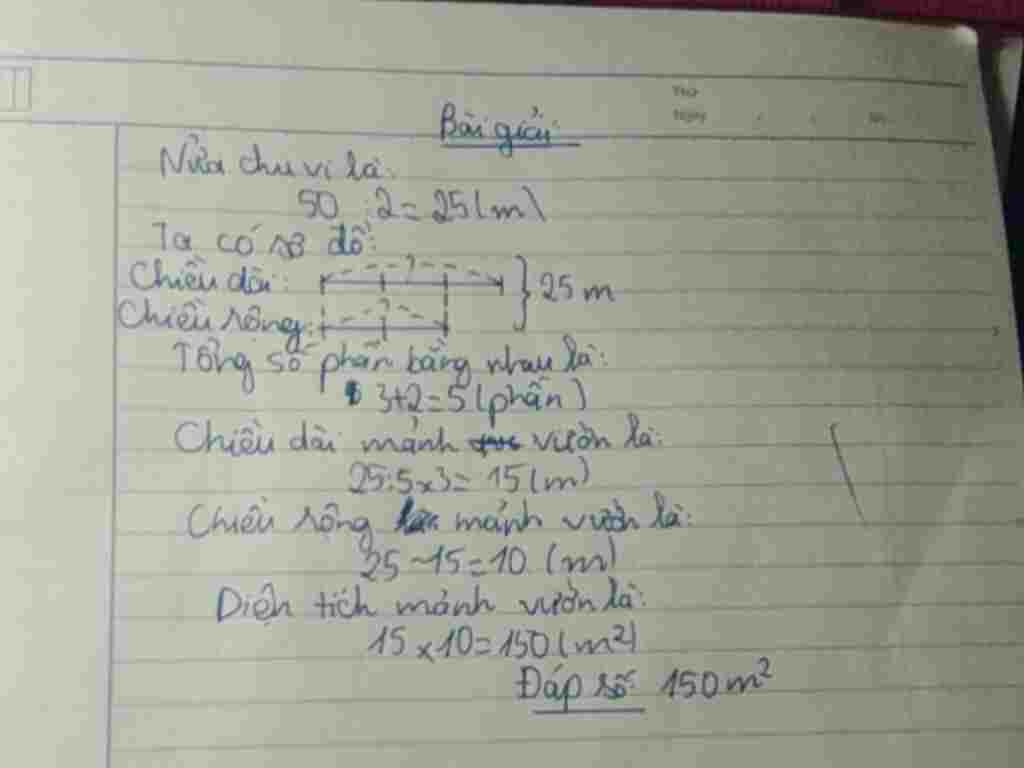 Thứ
Ngày
Bài giải:
Nửa chu vi là:
50 : 2 = 25 (m)
Ta có sơ đồ:
Chiều dài: ? 25 m
Chiều rộng: ?
Tổng số phần bằng nhau là:
3+2=5 (phần)
Chiều dài mảnh vườn là:
25:5×3= 15 (m)
Chiều rộng mảnh vườn là:
25 - 15 = 10 (m)
Diện tích mảnh vườn là:
15 × 10 = 150 (m²)
Đáp số: 150 m²